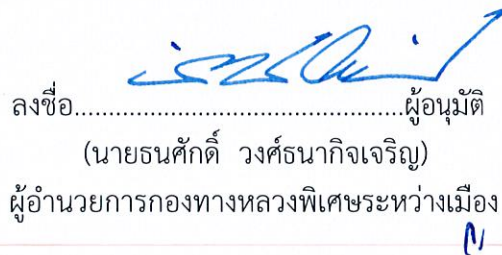 ลงชื่อ................................................ผู้อนุมัติ
(นายธนศักดิ์ วงศ์ธนากิจเจริญ)
ผู้อำนวยการกองทางหลวงพิเศษระหว่างเมือง